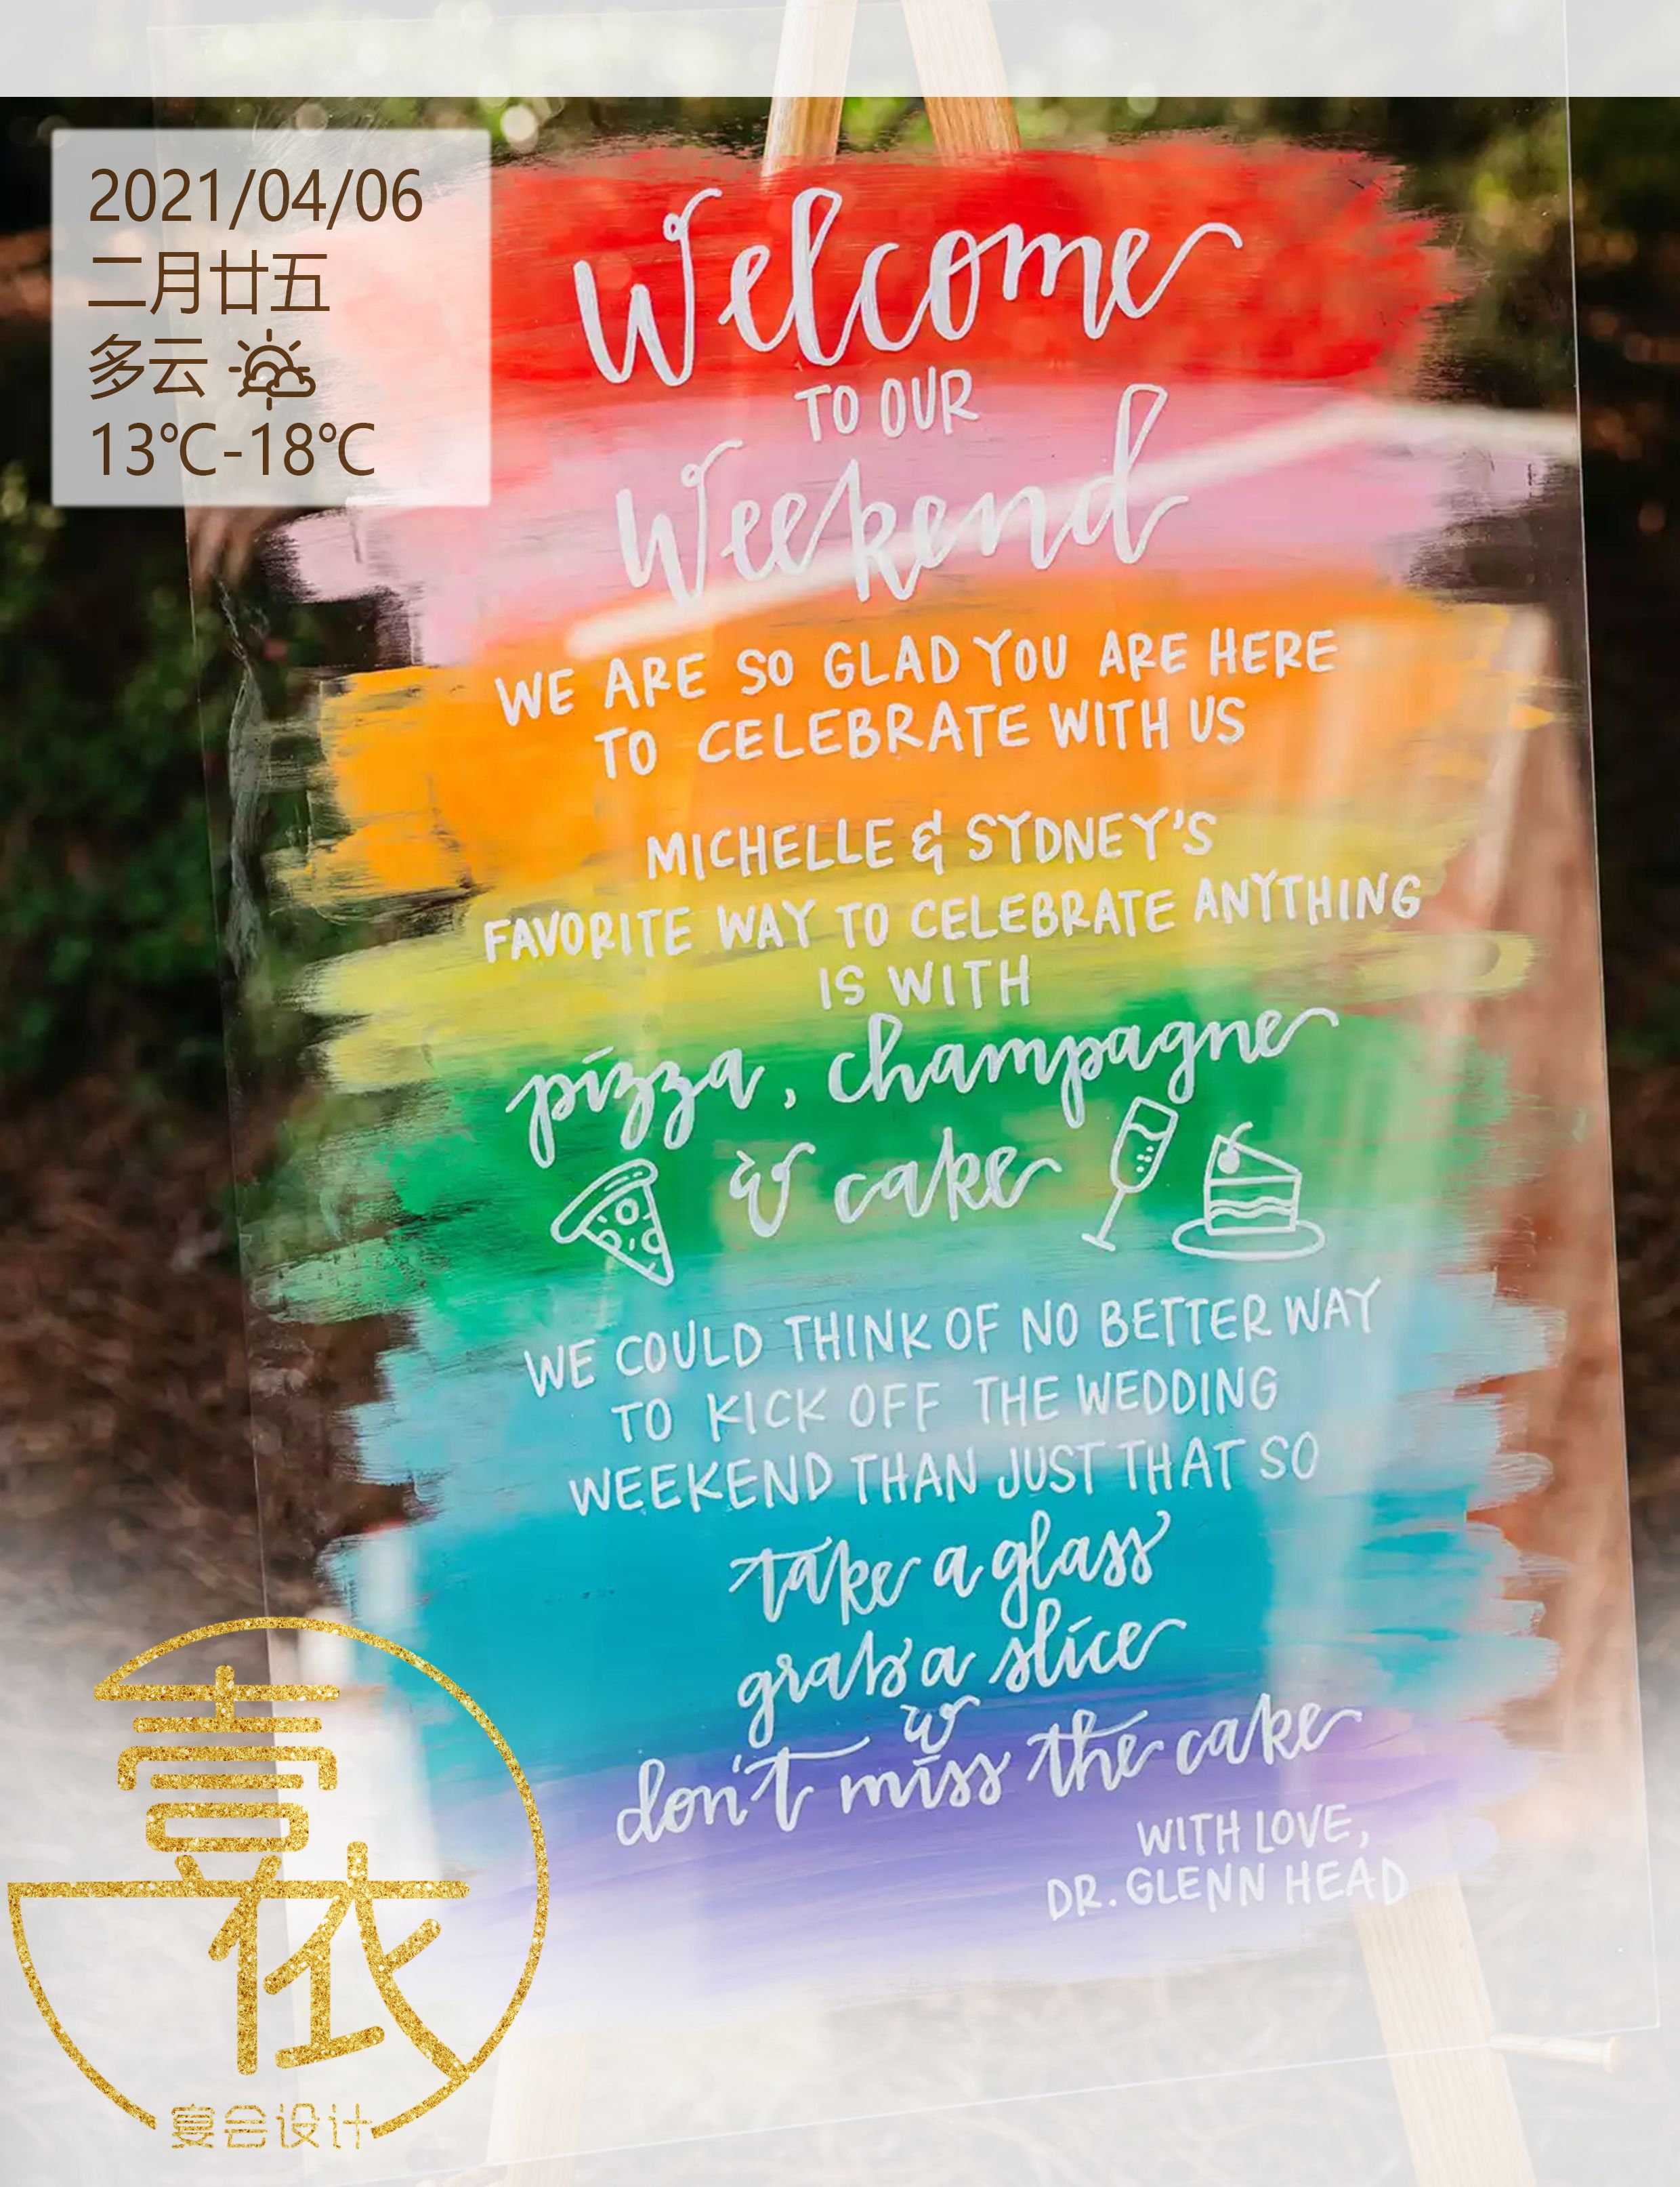 2021/04/06
二月廿五
多云
13℃-18℃
Welcome
TO OUR
Weekend
WE ARE SO GLAD YOU ARE HERE
TO CELEBRATE WITH US
MICHELLE & SYDNEY'S
FAVORITE WAY TO CELEBRATE ANYTHING
IS WITH
pizza, champagne
& cake
WE COULD THINK OF NO BETTER WAY
TO KICK OFF THE WEDDING
WEEKEND THAN JUST THAT SO
take a glass
grab a slice
&
don't miss the cake
WITH LOVE,
DR. GLENN HEAD
宴会设计